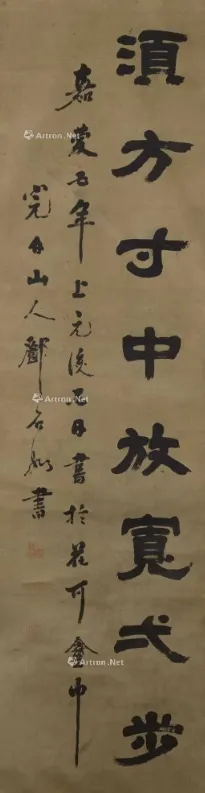 須方寸中放寬弌步
嘉慶五年上元後五日書於花可盦中
完白山人鄧石如書
Artron.Net
Artron.Net
Artron.Net
Artron.Net